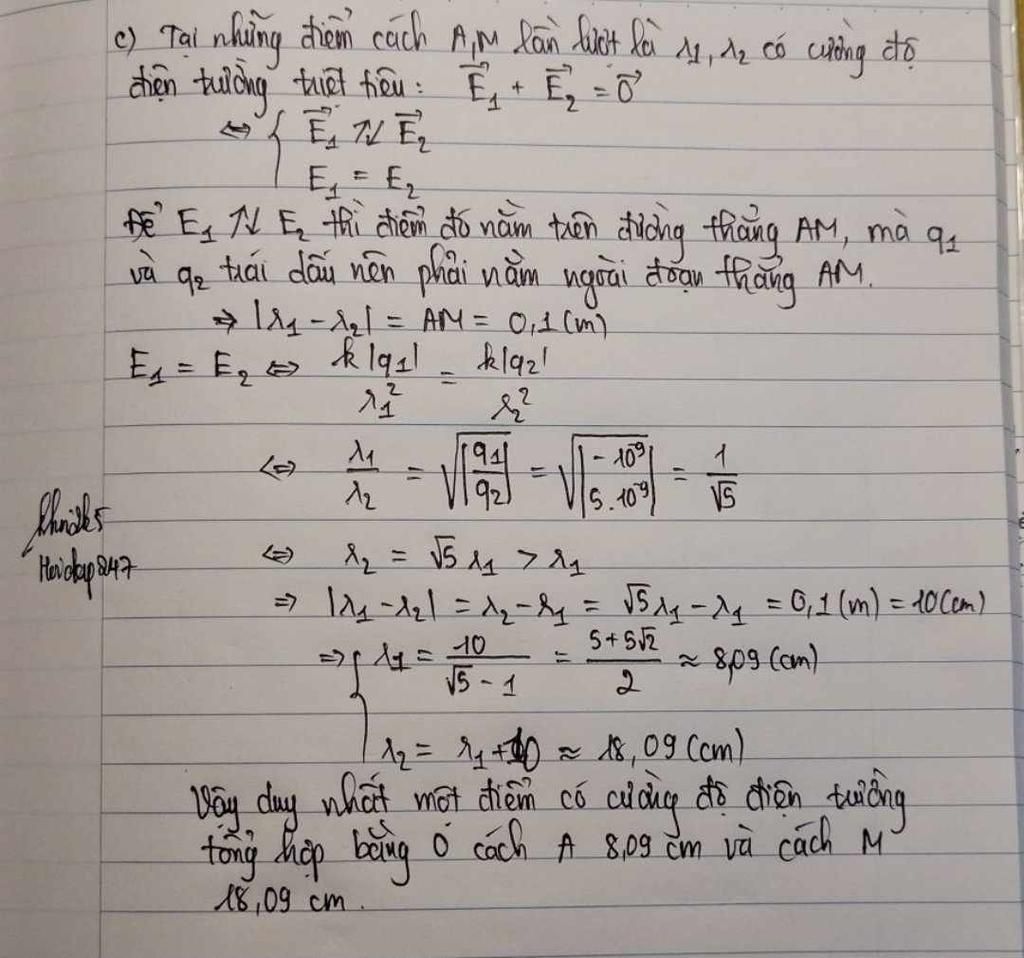 c) Tại những điểm cách A,M lần lượt là r₁, r₂ có cường độ
điện trường triệt tiêu: E⃗₁ + E⃗₂ = 0⃗
⇔ { E⃗₁ ↑↓ E⃗₂
E₁ = E₂
Để E₁ ↑↓ E₂ thì điểm đó nằm trên đường thẳng AM, mà q₁
và q₂ trái dấu nên phải nằm ngoài đoạn thẳng AM.
⇒ |r₁ - r₂| = AM = 0,1 (m)
E₁ = E₂ ⇔ k|q₁|/r₁² = k|q₂|/r₂²
⇔ r₁/r₂ = √|q₁/q₂| = √|-10⁻⁹/5.10⁻⁹| = 1/√5
⇔ r₂ = √5 r₁ > r₁
Hoidap247
⇒ |r₁ - r₂| = r₂ - r₁ = √5r₁ - r₁ = 0,1 (m) = 10 (cm)
⇒ { r₁ = 10/(√5 - 1) = (5+5√2)/2 ≈ 8,09 (cm)
r₂ = r₁ + 10 ≈ 18,09 (cm)
Vậy duy nhất một điểm có cường độ điện trường
tổng hợp bằng 0 cách A 8,09 cm và cách M
18,09 cm.